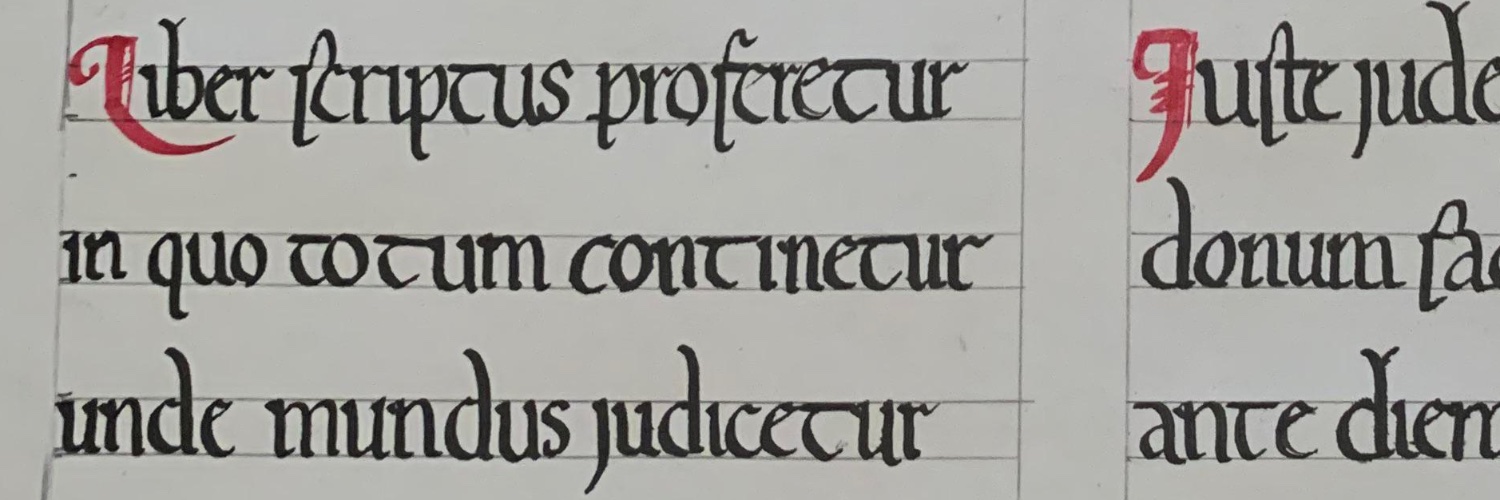 Liber ſcriptus proferetur
in quo totum continetur
unde mundus judicetur
Juſte jude
donum fac
ante diem